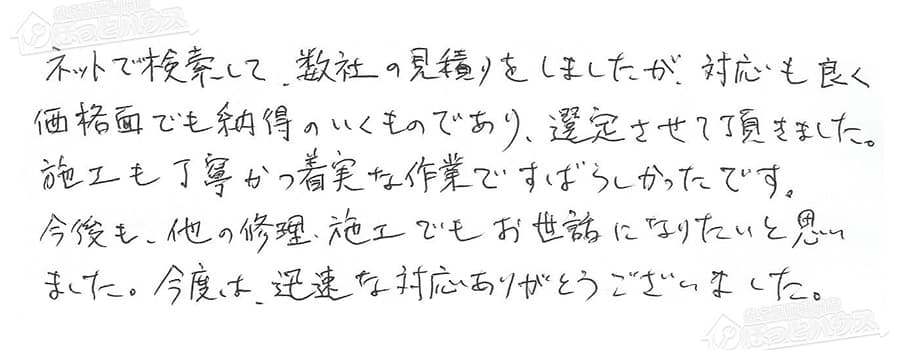 ネットで検索して、数社の見積りをしましたが、対応も良く
価格面でも納得のいくものであり、選定させて頂きました。
施工も丁寧かつ着実な作業ですばらしかったです。
今後も、他の修理、施工でもお世話になりたいと思い
ました。今度は、迅速な対応ありがとうございました。